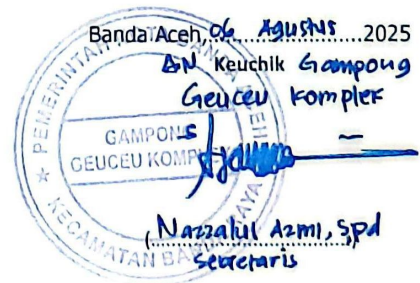 Banda Aceh, 06 Agustus 2025
AN Keuchik Gampong
Geuceu Komplek
PEMERINTAH KOTA BANDA ACEH
GAMPONG
GEUCEU KOMPLEK
KECAMATAN BANDA RAYA
(Nazzalul Azmi, Spd)
Secretaris